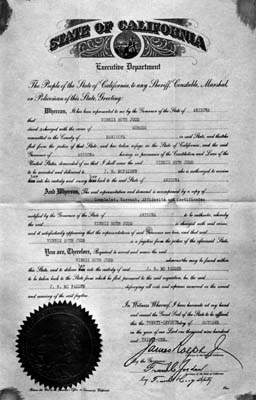 STATE OF CALIFORNIA
Executive Department
The People of the State of California, to any Sheriff, Constable, Marshal,
or Policeman of this State, Greeting:
Whereas, It has been represented to me by the Governor of the State of ARIZONA
that WINNIE RUTH JUDD
stand charged with the crime of MURDER
committed in the County of MARICOPA in said State, and that she
fled from the justice of that State, and has taken refuge in the State of California, and the said
Governor of ARIZONA having in pursuance of the Constitution and Laws of the
United States, demanded of me that I shall cause the said WINNIE RUTH JUDD
to be arrested and delivered to J. R. McFADDEN who is authorized to receive
her into his custody and convey her back to the said State of ARIZONA
And Whereas, The said representation and demand is accompanied by a copy of
Complaint, Warrant, Affidavits and Certificates
certified by the Governor of the State of ARIZONA to be authentic, whereby
the said WINNIE RUTH JUDD is charged with said crime,
and it satisfactorily appearing that the representations of said Governor are true, and that said
WINNIE RUTH JUDD is a fugitive from the justice of the aforesaid State,
You are, Therefore, Required to arrest and secure the said
WINNIE RUTH JUDD wherever she may be found within
this State, and to deliver her into the custody of said J. R. Mc FADDEN
to be taken back to the State from which he fled, pursuant to the said requisition, he, the said
J. R. Mc FADDEN defraying all costs and expenses incurred in the arrest
and securing of the said fugitive.
In Witness Whereof, I have hereunto set my hand
and caused the Great Seal of the State to be affixed,
this TWENTY-SEVENTH day of OCTOBER
in the year of our Lord one thousand nine hundred
and THIRTY-ONE.
James Rolph Jr
By the Governor
Frank C. Jordan
By
Deputy